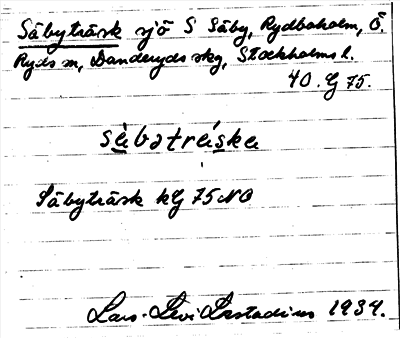 Såbyträsk sjö S Såby, Rydboholm, Ö.
Ryds sn, Danderyds skg, Stockholms l.
40. G 75.
såbatrǽska
Såbyträsk kG 75 NO
Lars-Levi Læstadius 1934.